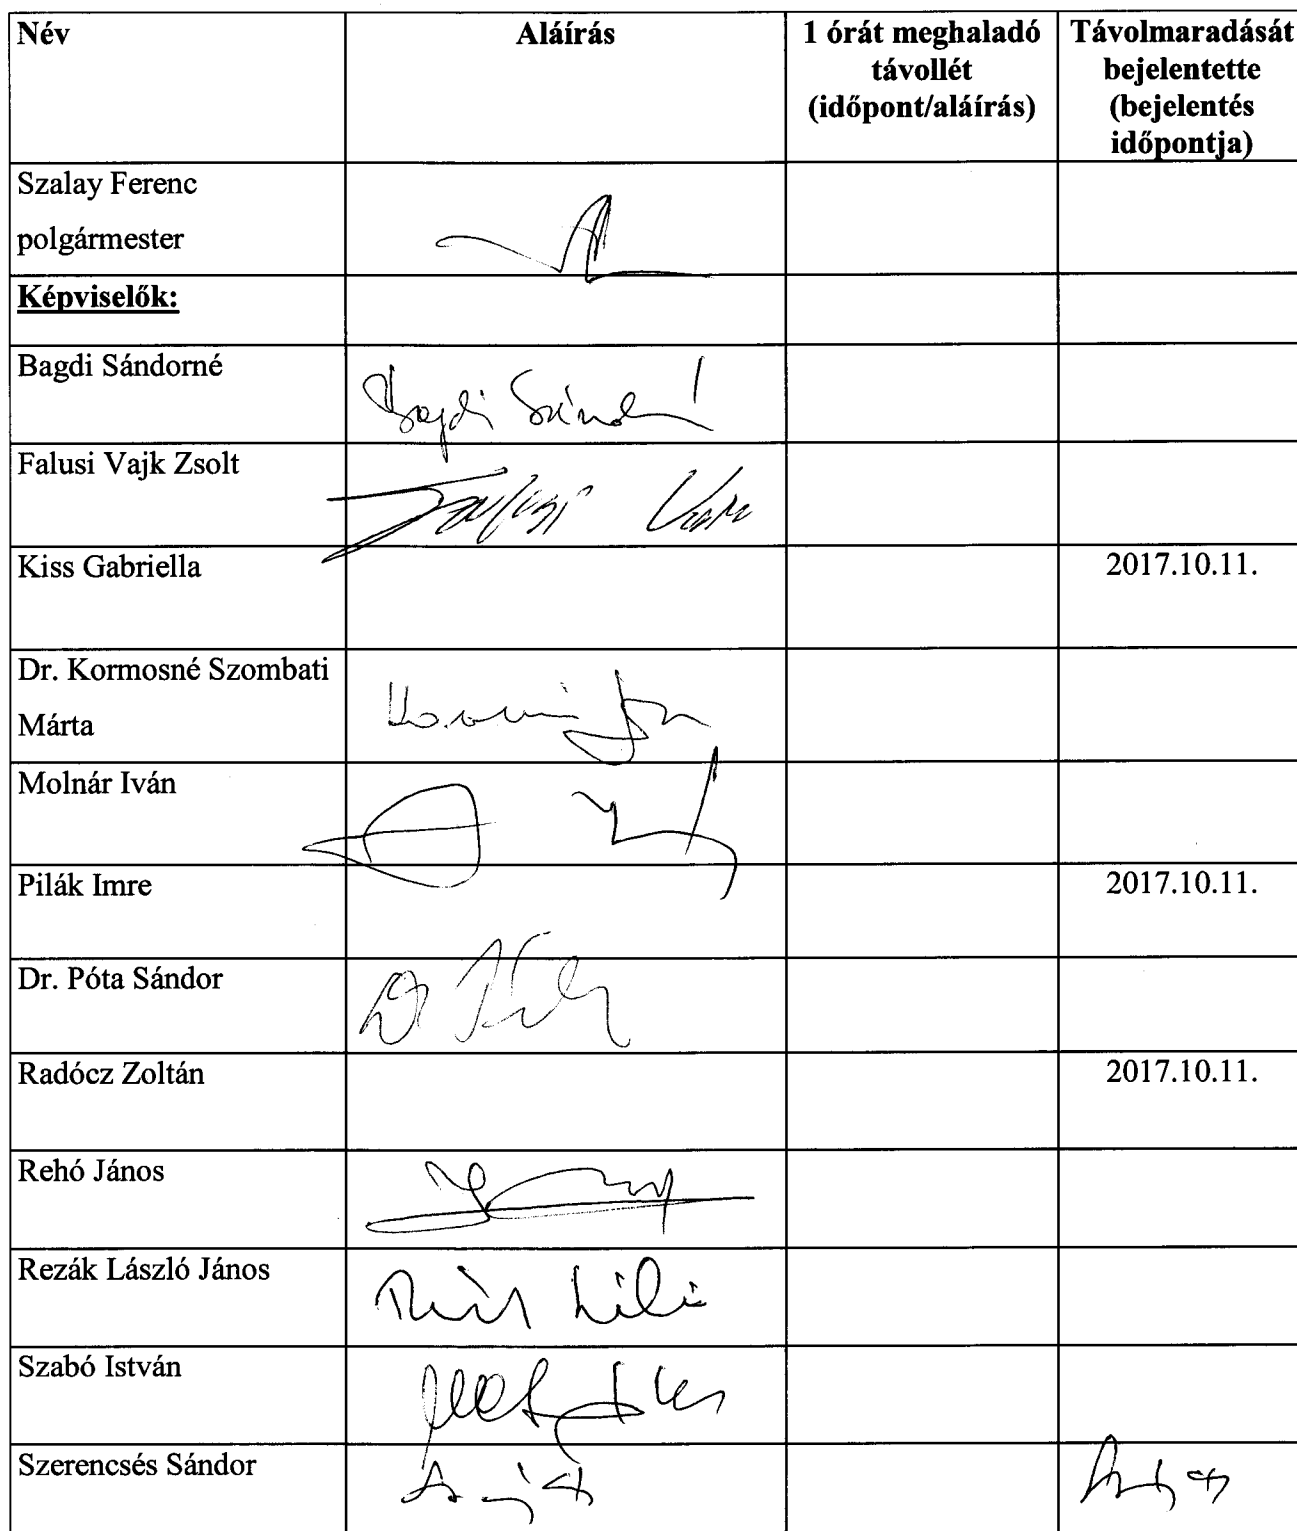 Név Aláírás 1 órát meghaladó távollét (időpont/aláírás) Távolmaradását bejelentette (bejelentés időpontja)
Szalay Ferenc
polgármester
Képviselők:
Bagdi Sándorné Bagdi Sándorné
Falusi Vajk Zsolt Falusi Vajk
Kiss Gabriella 2017.10.11.
Dr. Kormosné Szombati
Márta
Molnár Iván
Pilák Imre 2017.10.11.
Dr. Póta Sándor Dr Póta
Radócz Zoltán 2017.10.11.
Rehó János
Rezák László János
Szabó István
Szerencsés Sándor